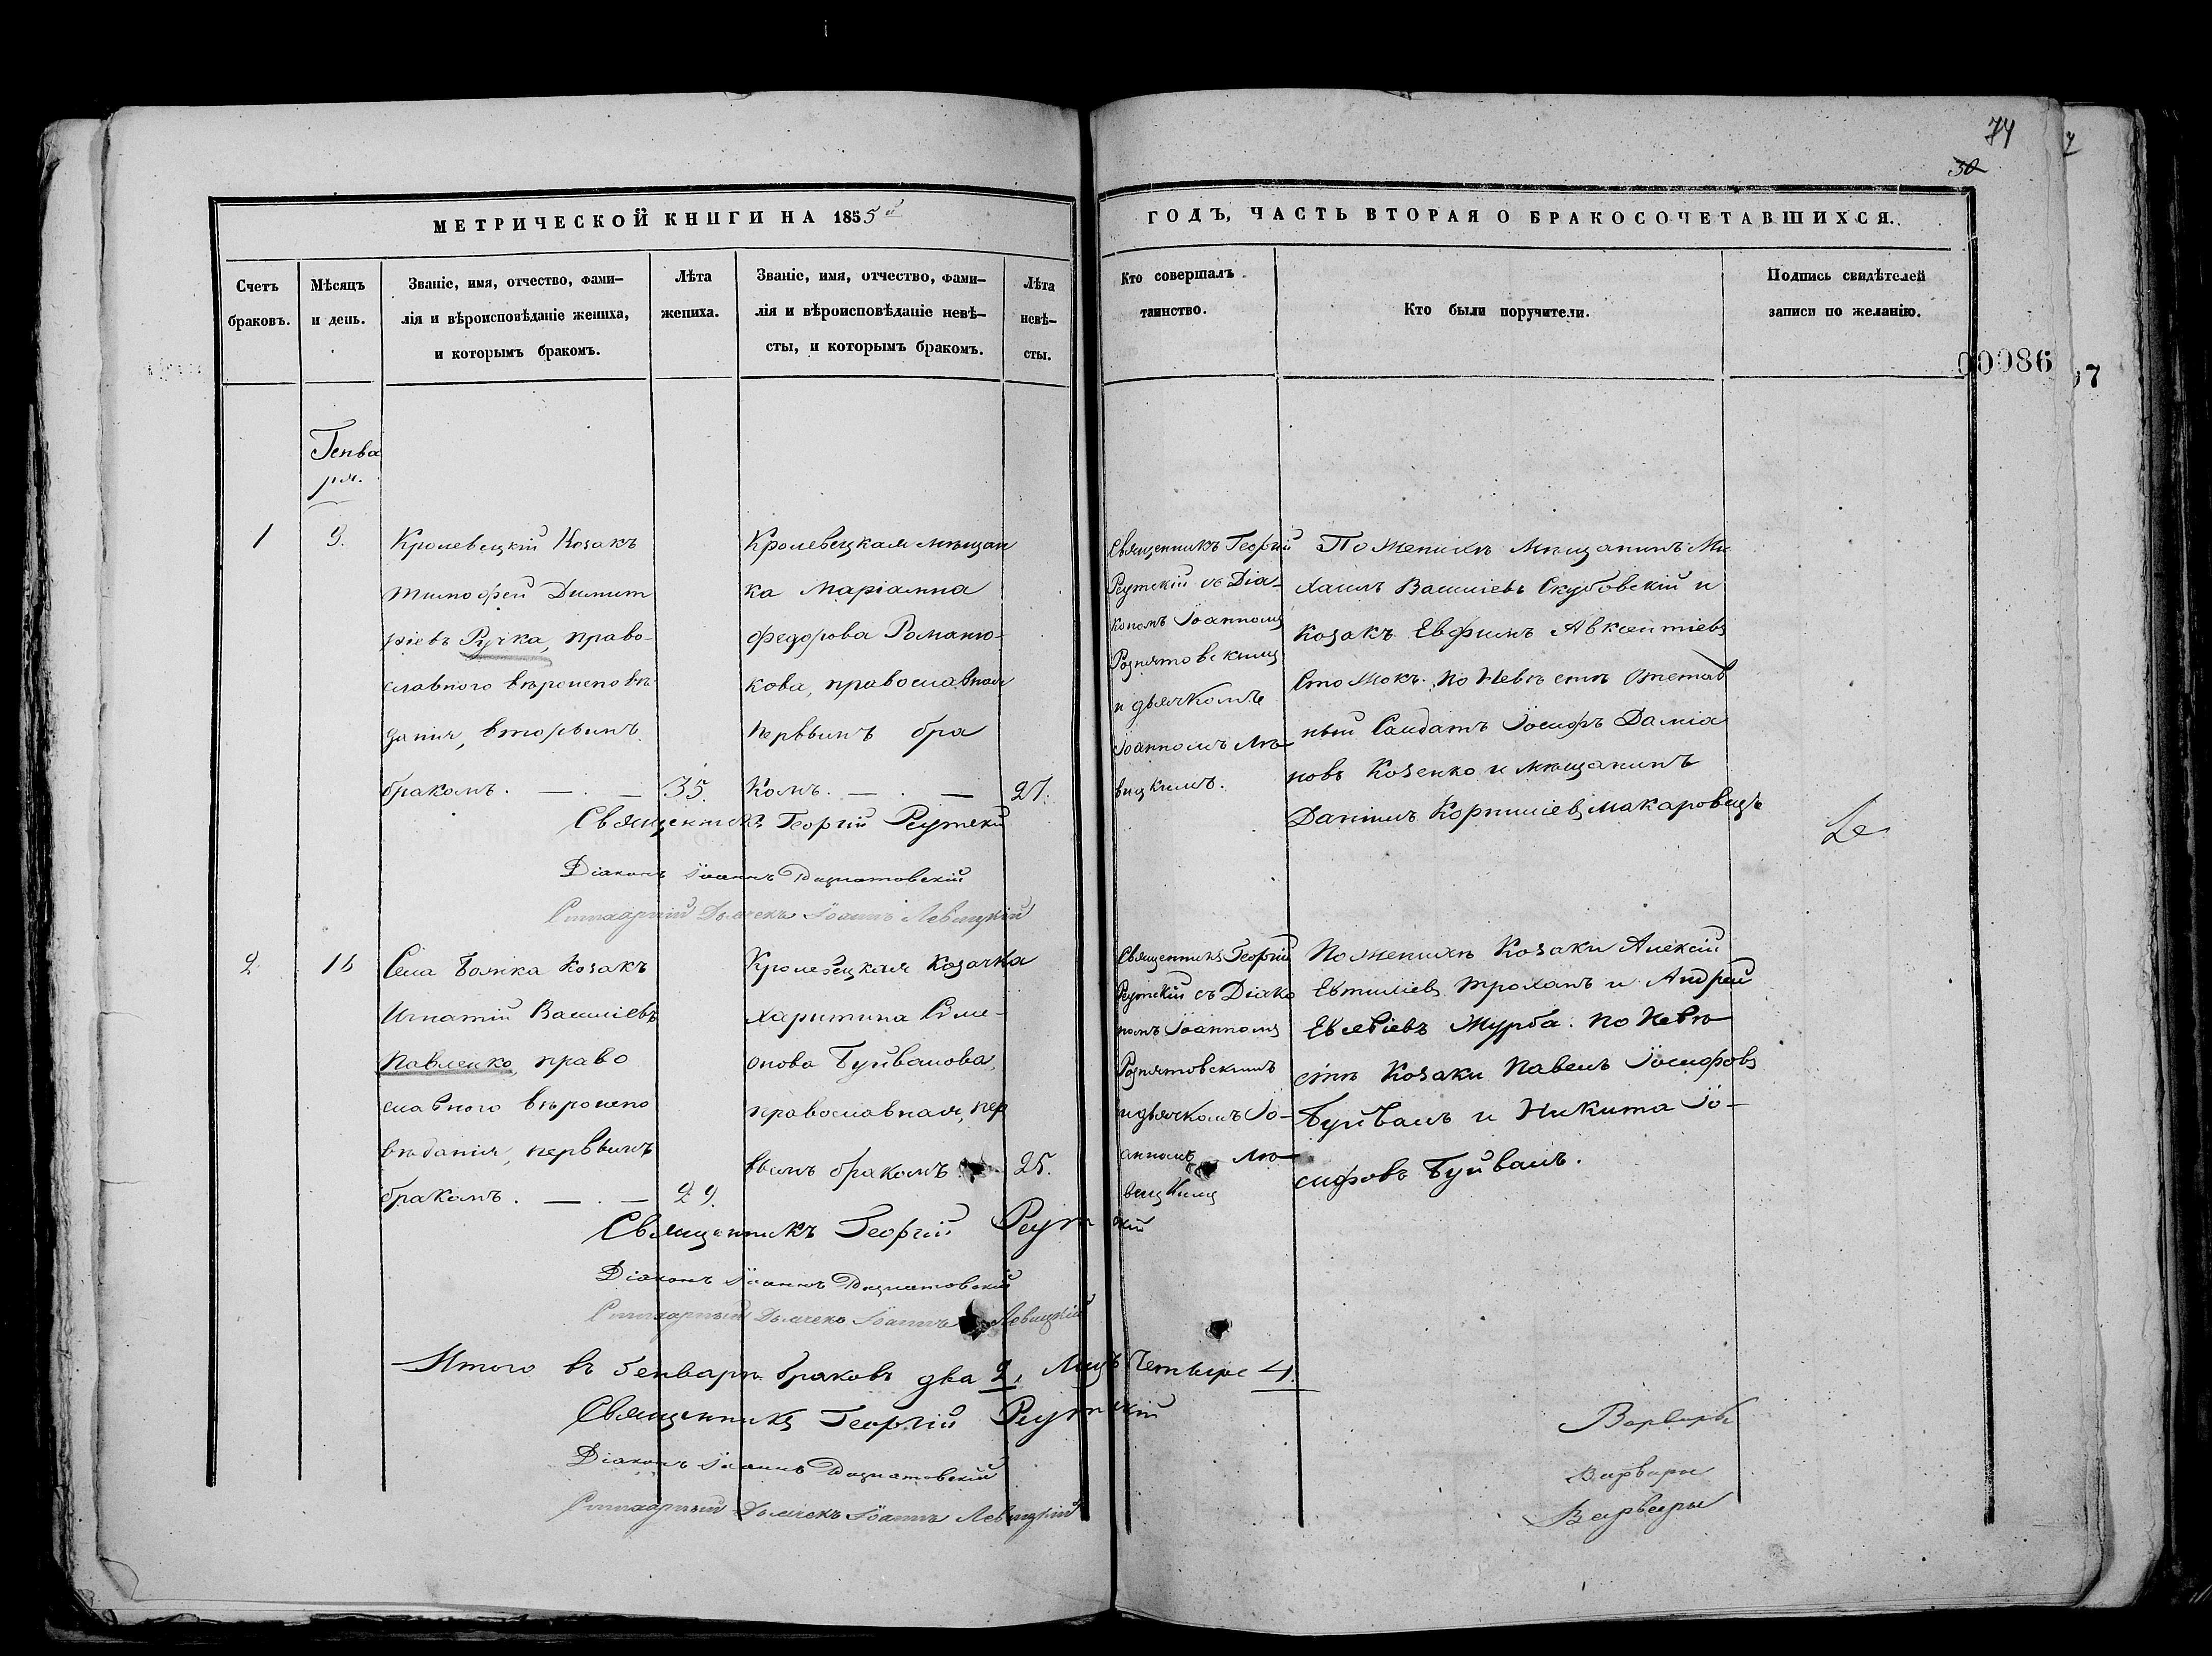 74
30
МЕТРИЧЕСКОЙ КНИГИ НА 1855й
ГОДЪ, ЧАСТЬ ВТОРАЯ О БРАКОСОЧЕТАВШИХСЯ.
Счетъ
браковъ.
Мѣсяцъ
и день.
Званіе, имя, отчество, фами–
лія и вѣроисповѣданіе жениха,
и которымъ бракомъ.
Лѣта
жениха.
Званіе, имя, отчество, фами–
лія и вѣроисповѣданіе невѣ–
сты, и которымъ бракомъ.
Лѣта
невѣ–
сты.
Кто совершалъ
таинство.
Кто были поручители.
Подпись свидѣтелей
записи по желанію.
00086
Генва
ря.
1
9.
Кролевецкій Козакъ
Тимофей Димит
ріевъ Ручка, право-
славного вѣроисповѣ
данія, вторымъ
бракомъ. — . —
35.
Кролевецкая мѣщан
ка Маріанна
Федорова Романю-
кова, православная
первымъ бра
комъ. — . —
27.
Священникъ Георгій
Реутскій съ Діа-
кономъ Іоанномъ
Рознятовскимъ
и дьячкомъ
Іоанномъ Ле-
вицкимъ.
По Женихѣ Мѣщанинъ Ми
хаилъ Василіевъ Скубовскій и
козакъ Евфимъ Авксентіевъ
Стомокъ. По Невѣстѣ Отстав
ный Салдатъ Іосифъ Даміа
новъ Козенко и мѣщанинъ
Даніилъ Корниліевъ Макаровецъ
Священникъ Георгій Реутскій
Діаконъ Іоаннъ Рознятовскій
Стихарный Дьячекъ Іоаннъ Левицкій
2
16
Села козакъ
Игнатій Василіевъ
Павленко, право
славного вѣроиспо
вѣданія, первымъ
бракомъ. — . —
29.
Кролевецкая Козачка
Харитина Симе-
онова Буйвалова,
православная, пер
вымъ бракомъ.
25.
Священникъ Георгій
Реутскій съ Діако
номъ Іоанномъ
Рознятовскимъ
и дьячкомъ Іо-
анномъ Ле-
вицкимъ
По Женихѣ Козаки Алексій
Евтихіевъ Троханъ и Андрей
Евсевіевъ Журба. По Невѣ
стѣ Козаки Павелъ Іосифовъ
Буйвалъ и Никита Іо-
сифовъ Буйвалъ.
Священникъ Георгій Реутскій
Діаконъ Іоаннъ Рознятовскій
Стихарный Дьячекъ Іоаннъ Левицкій
Итого въ Генварѣ браковъ два 2, Лицъ Четыре 4.
Священникъ Георгій Реутскій
Діаконъ Іоаннъ Рознятовскій
Стихарный Дьячекъ Іоаннъ Левицкій
Варвары
Варвары
Варвары